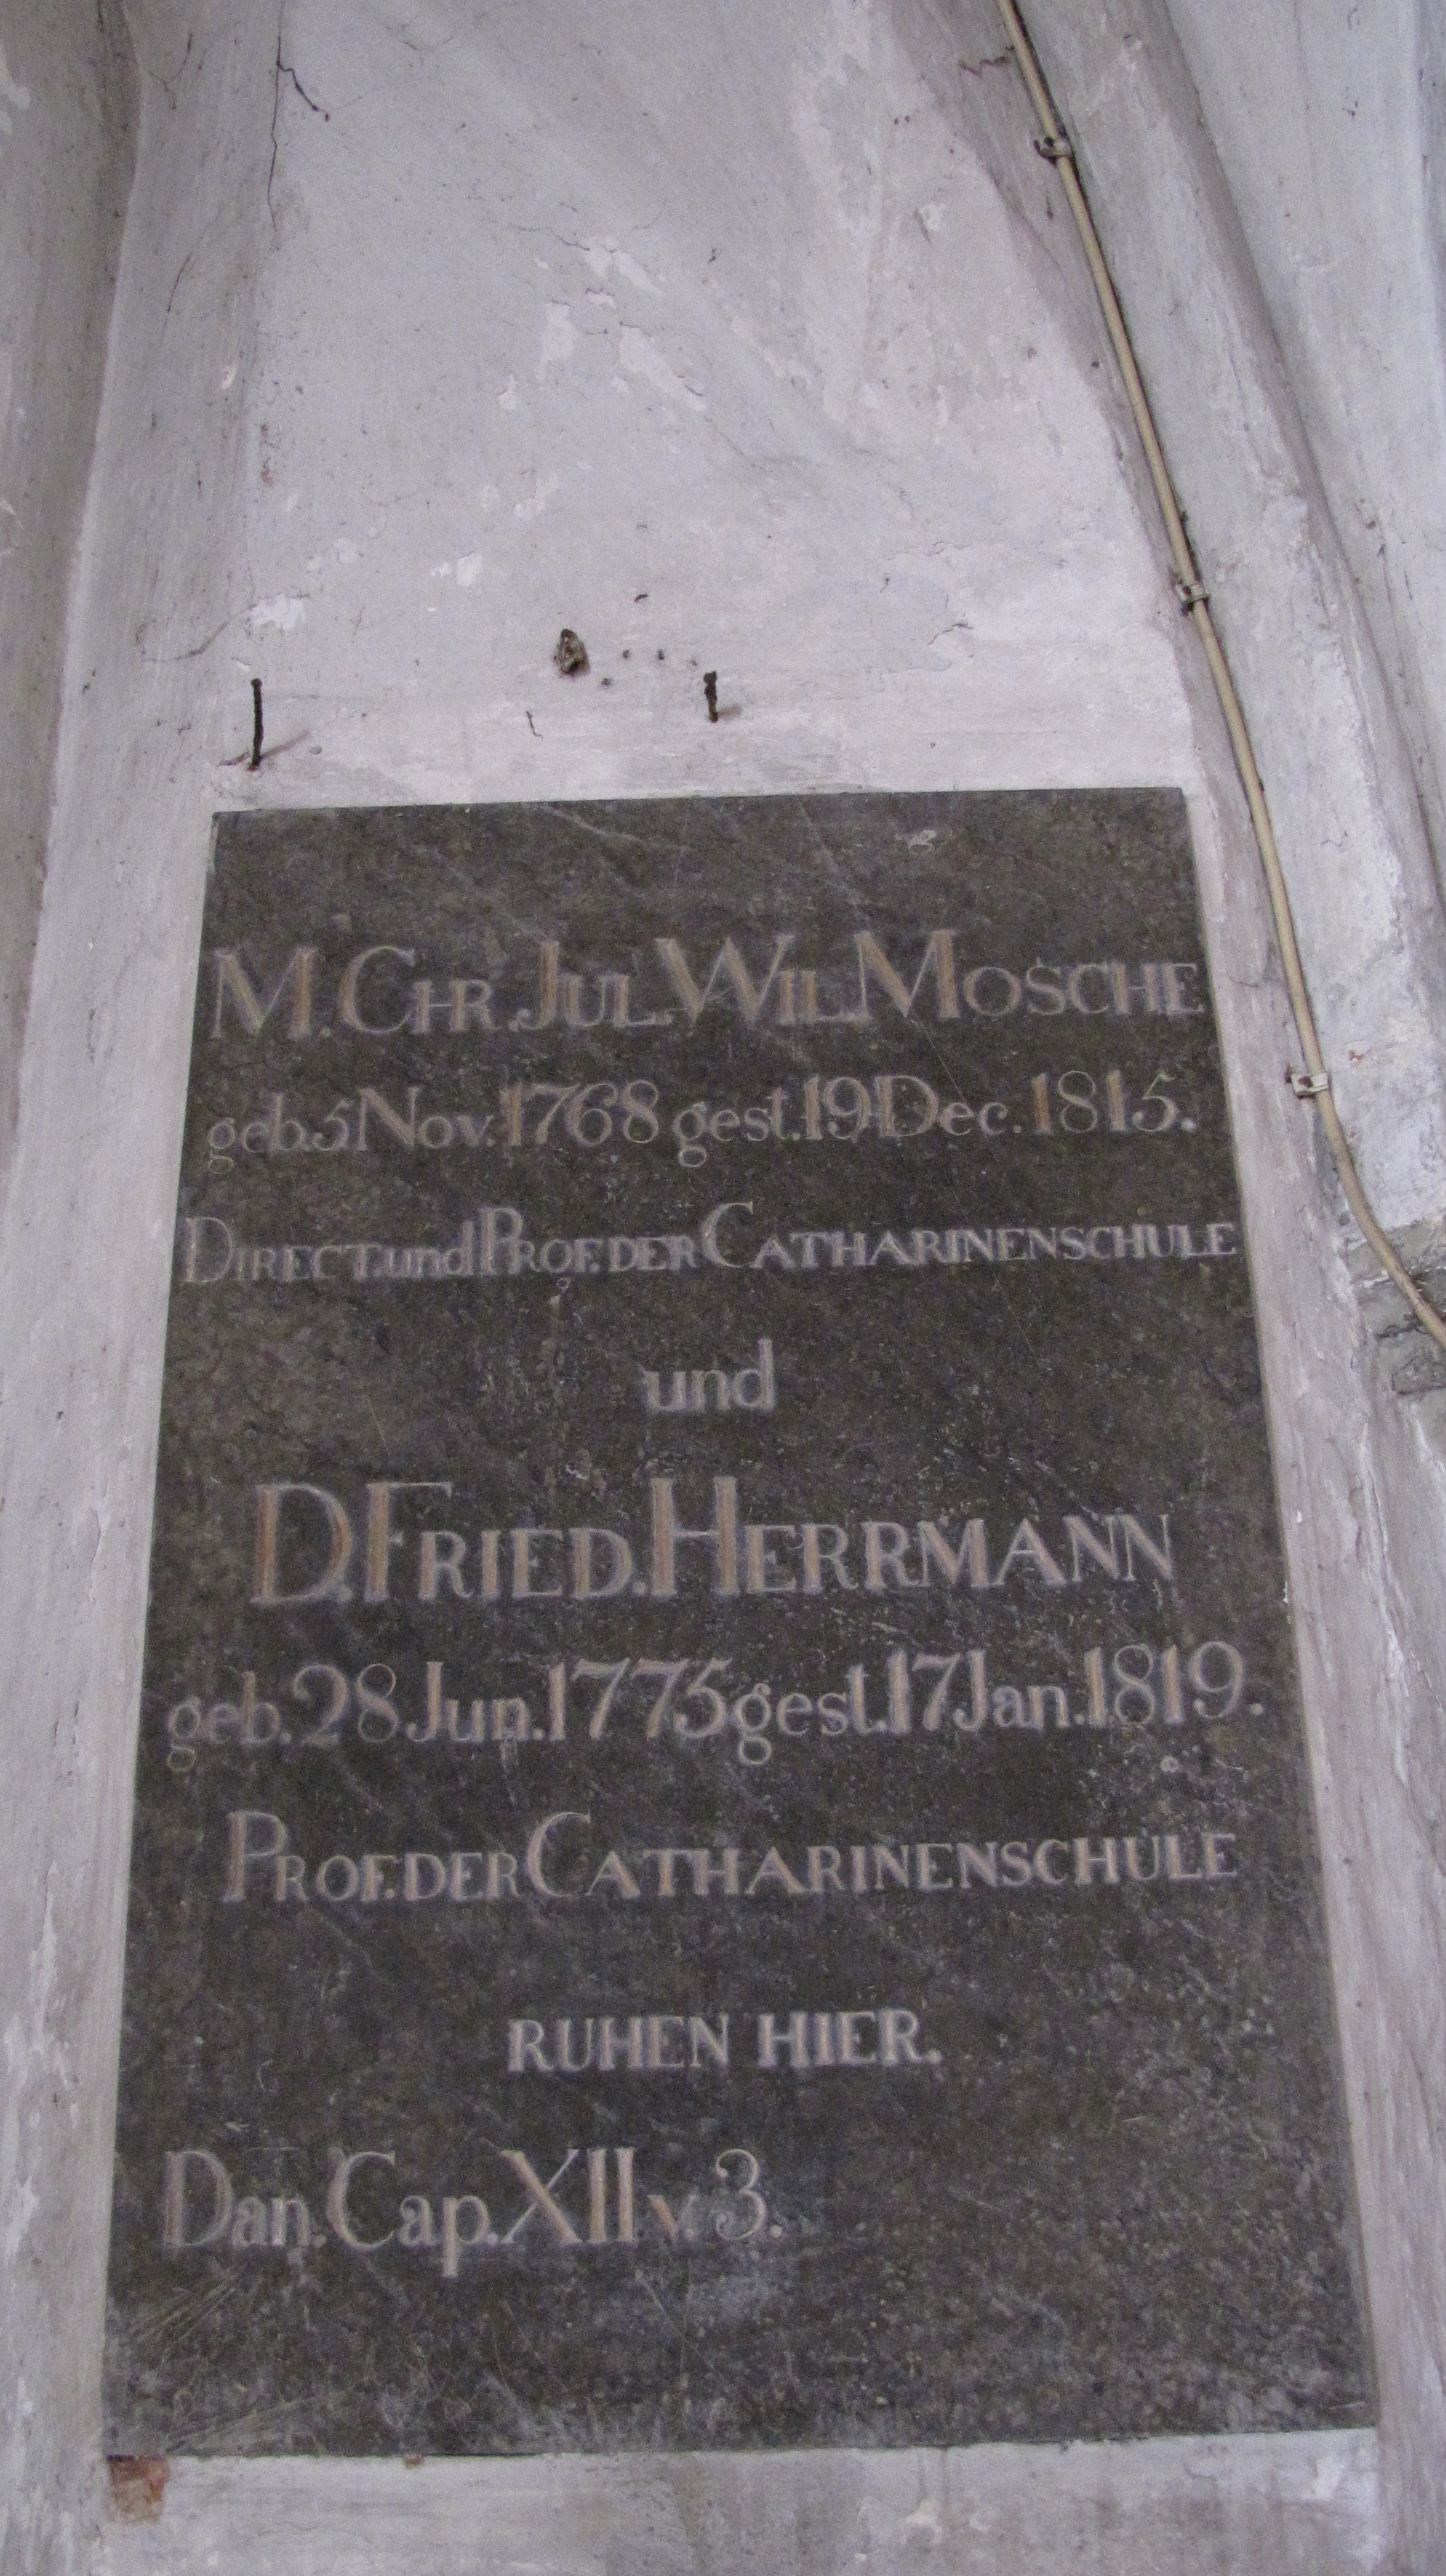 M. CHR. JUL. WIL. MOSCHE
geb. 5 Nov. 1768 gest. 19 Dec. 1815.
DIRECT. und PROF. DER CATHARINENSCHULE
und
D. FRIED. HERRMANN
geb. 28 Jun. 1775 gest. 17 Jan. 1819.
PROF. DER CATHARINENSCHULE
RUHEN HIER.
Dan. Cap. XII v. 3.